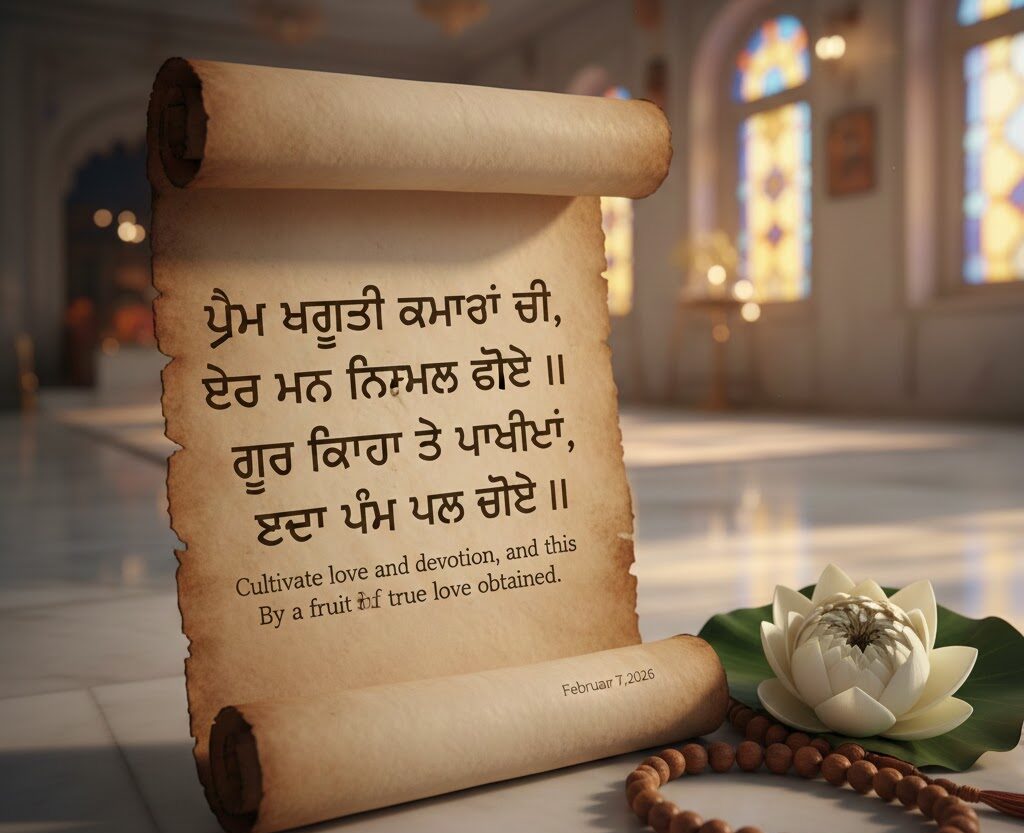 ਪ੍ਰੈਮ ਖਗੂਤੀ ਕਮਾਰਾਂ ਚੀ,
ਏਰ ਮਨ ਫੋਏ ॥
ਗੂਰ ਤੇ ਪਾਖੀਆਂ,
ਪੰਮ ਪਲ ਚੋਏ ॥
Cultivate love and devotion, and this
By a fruit true love obtained.
7,2026